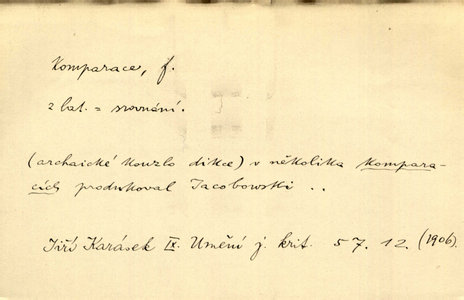 Komparace, f.
z lat. = srovnání.
(archaické kouzlo dikce) v několika kompara-
cích produkoval Jacobowski ..
Jiří Karásek IX. Umění j. krit. 57. 12. (1906).